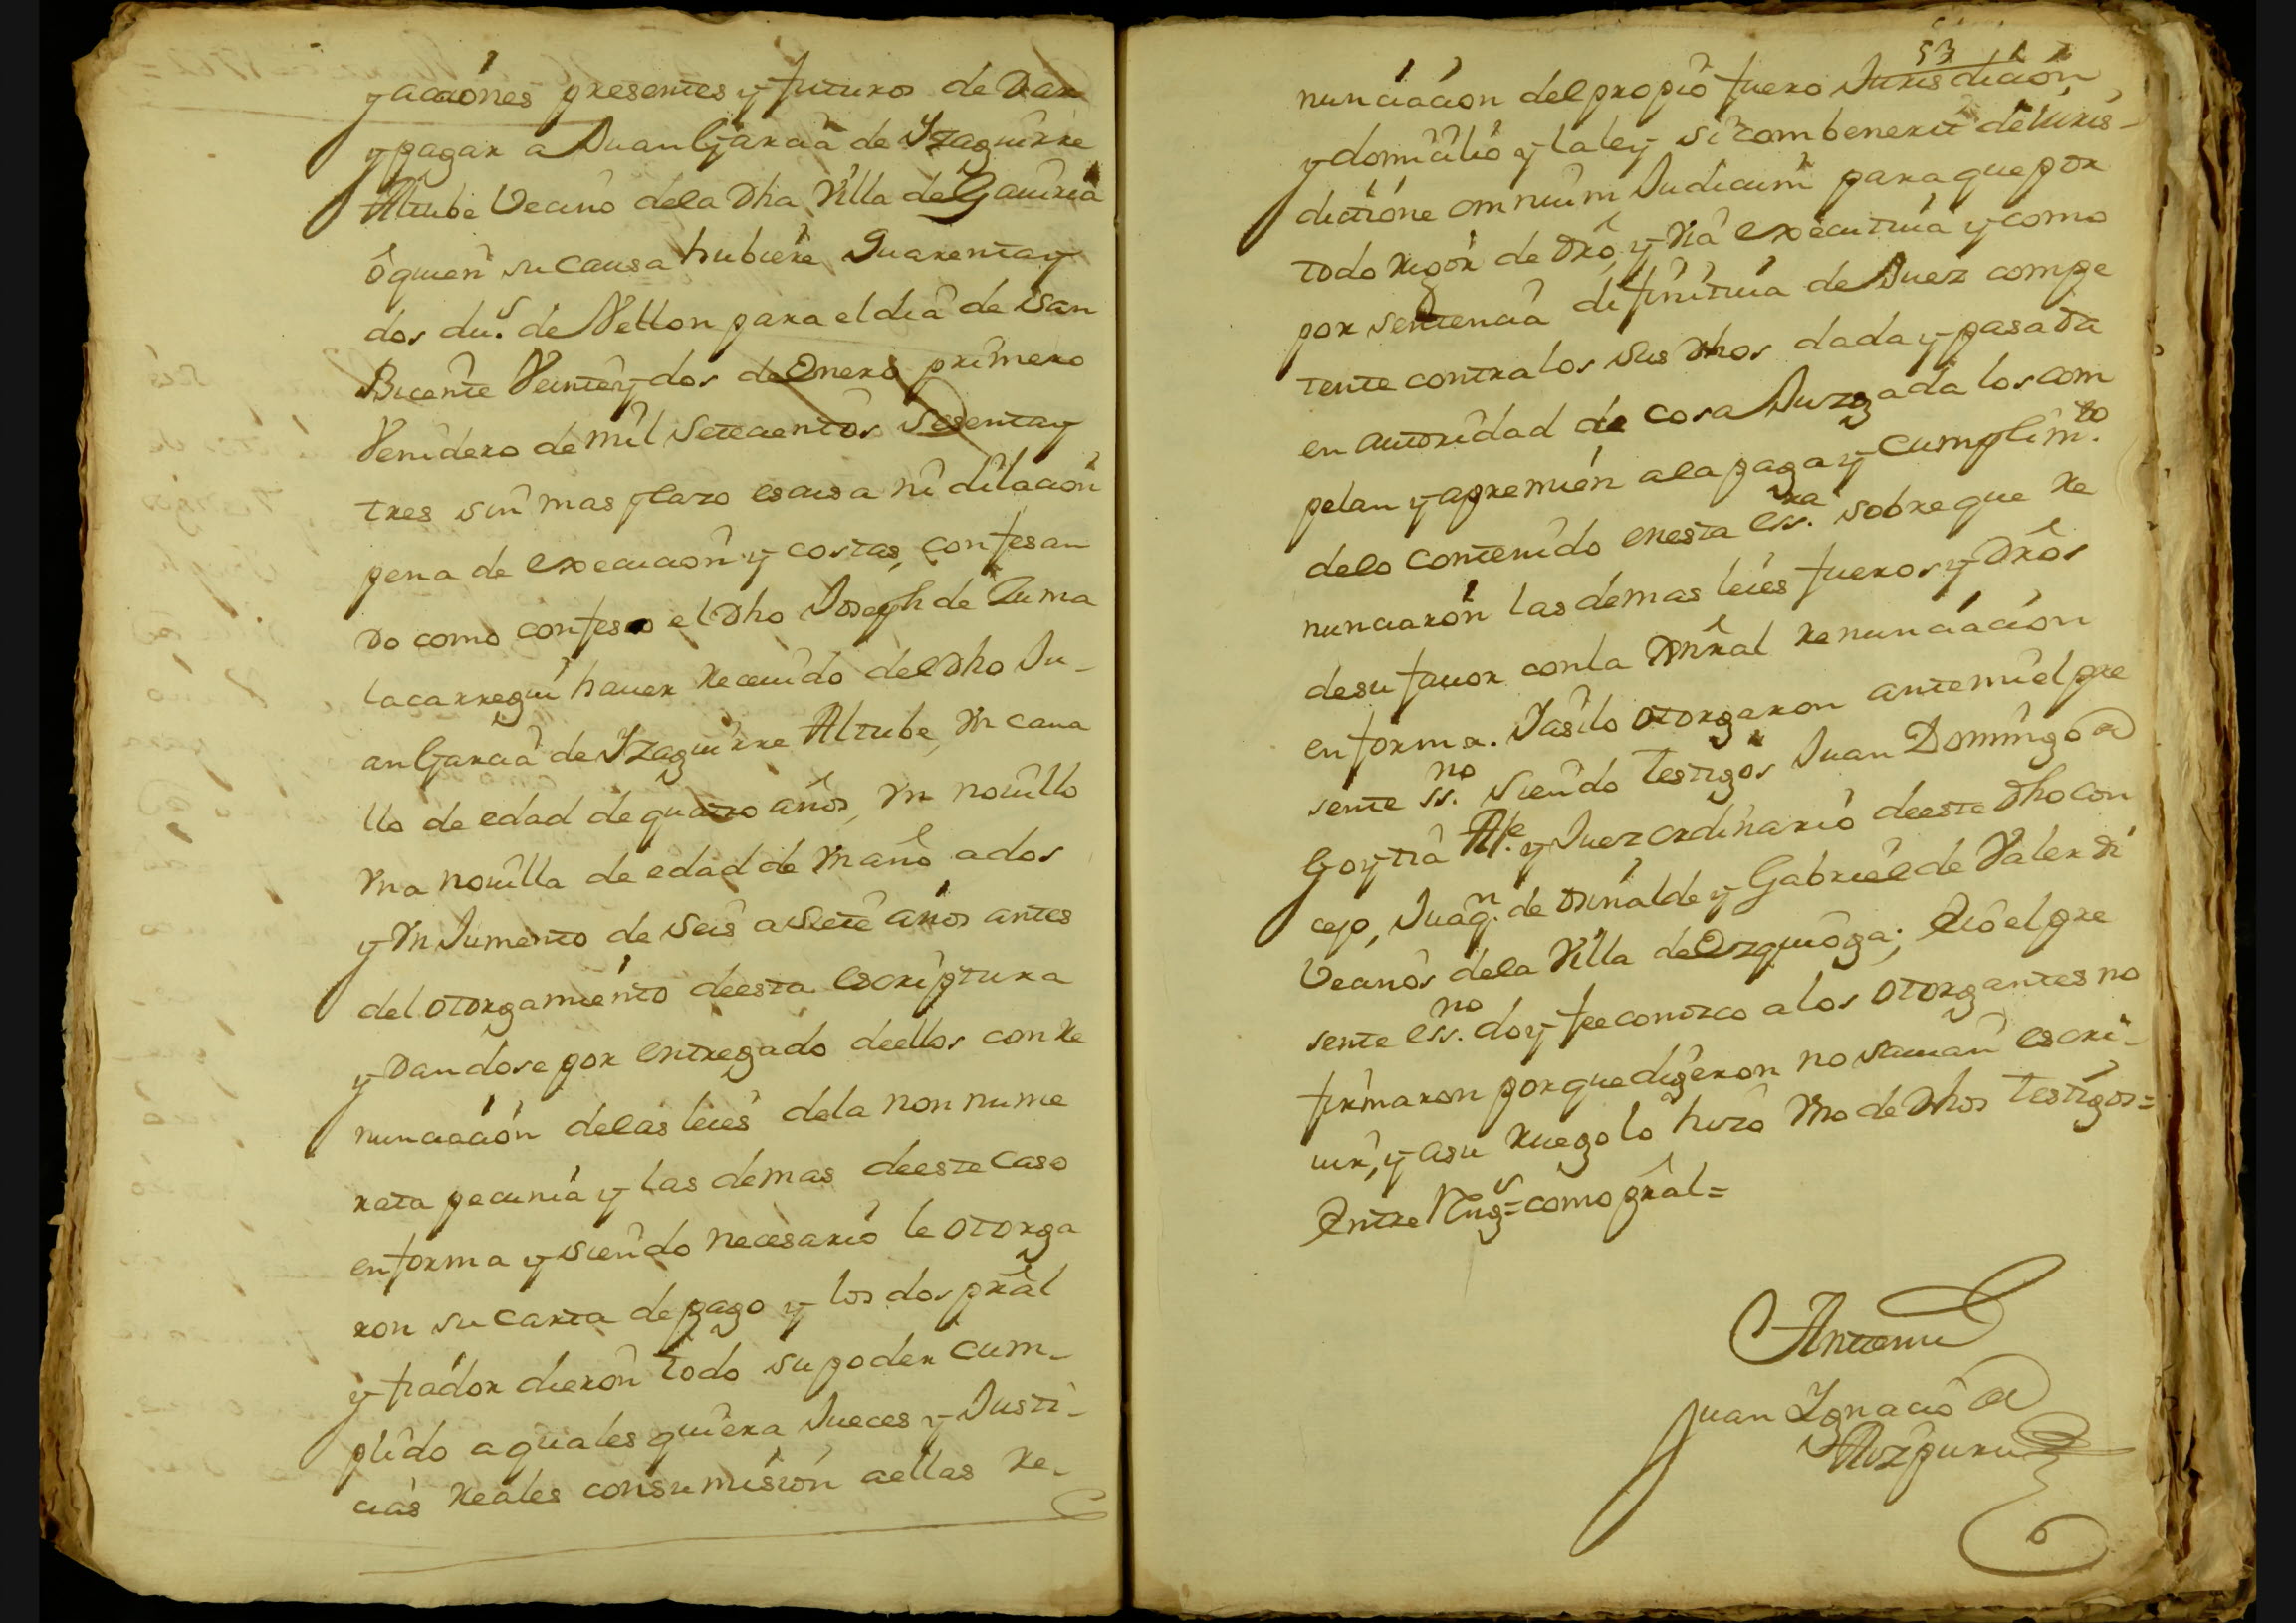 y acciones presentes y futuros de Dar
y pagar a Juan Garcia de Yzaguirre
Altube Vecino dela Dha Villa de Gauiria
ô quien su causa hubiere Quarenta y
dos du.s de Vellon para el dia de San
Bicente Veinte y dos de Enero primero
Venidero de mil Setecientos Sesenta y
tres sin mas plazo escusa ni dilacion
pena de execucion y costas, confesan
do como confeso el Dho Joseph de Zuma
lacarregui hauer Receuido del Dho Ju-
an Garcia de Yzaguirre Altube, Vn caua
llo de edad de quatro años, Vn nouillo
Vna nouilla de edad de Vn año a dos
y Vn Jumento de Seis a Siete años antes
del otorgamiento deesta escriptura
y Dandose por entregado deellos con Re
nunciación delas leies dela non nume
rata pecunia y las demas deeste caso
en forma y siendo necesario le otorga
ron su carta de pago y los dos prâl
y fiador dieron todo su poder cum-
plido a quales quiera Jueces y Justi-
cias Reales consumisión aellas Re-
53
nunciacion del propio fuero Jurisdición
y domicilio y la ley si combenerit de Iuris-
dictione omnium Judicum para que por
todo Rigor de Drô, y Via executiua y como
por sentencia difinitiua de Juez compe
tente contra los Sus Dhos dada y pasada
en autoridad de cosa Juzgada los com
pelan y apremien a la paga y cumplim.to
delo contenido enesta ess.ra sobre que Re
nunciarón las demas leies fueros y Drôs
de su fauor con la Gnrâl Renunciación
en forma. Y asi lo otorgaron ante mi el pre
sente ss.no siendo Testigos Juan Domingo de
Goytia Al.e y Juez ordinario deeste Dho con
cejo, Juaq.n de Osinalde y Gabriel de Valerdi
Vecinos dela Villa de Ezquioga; E io el pre
sente ess.no doy fee conozco a los otorgantes no
firmaron porque digeron no sauian escri-
uir, y a su Ruego lo hizo Vno de Dhos Testigos=
Entre Rengs= como prâl=
Antemi
Juan Ygnacio de
Aizpuru